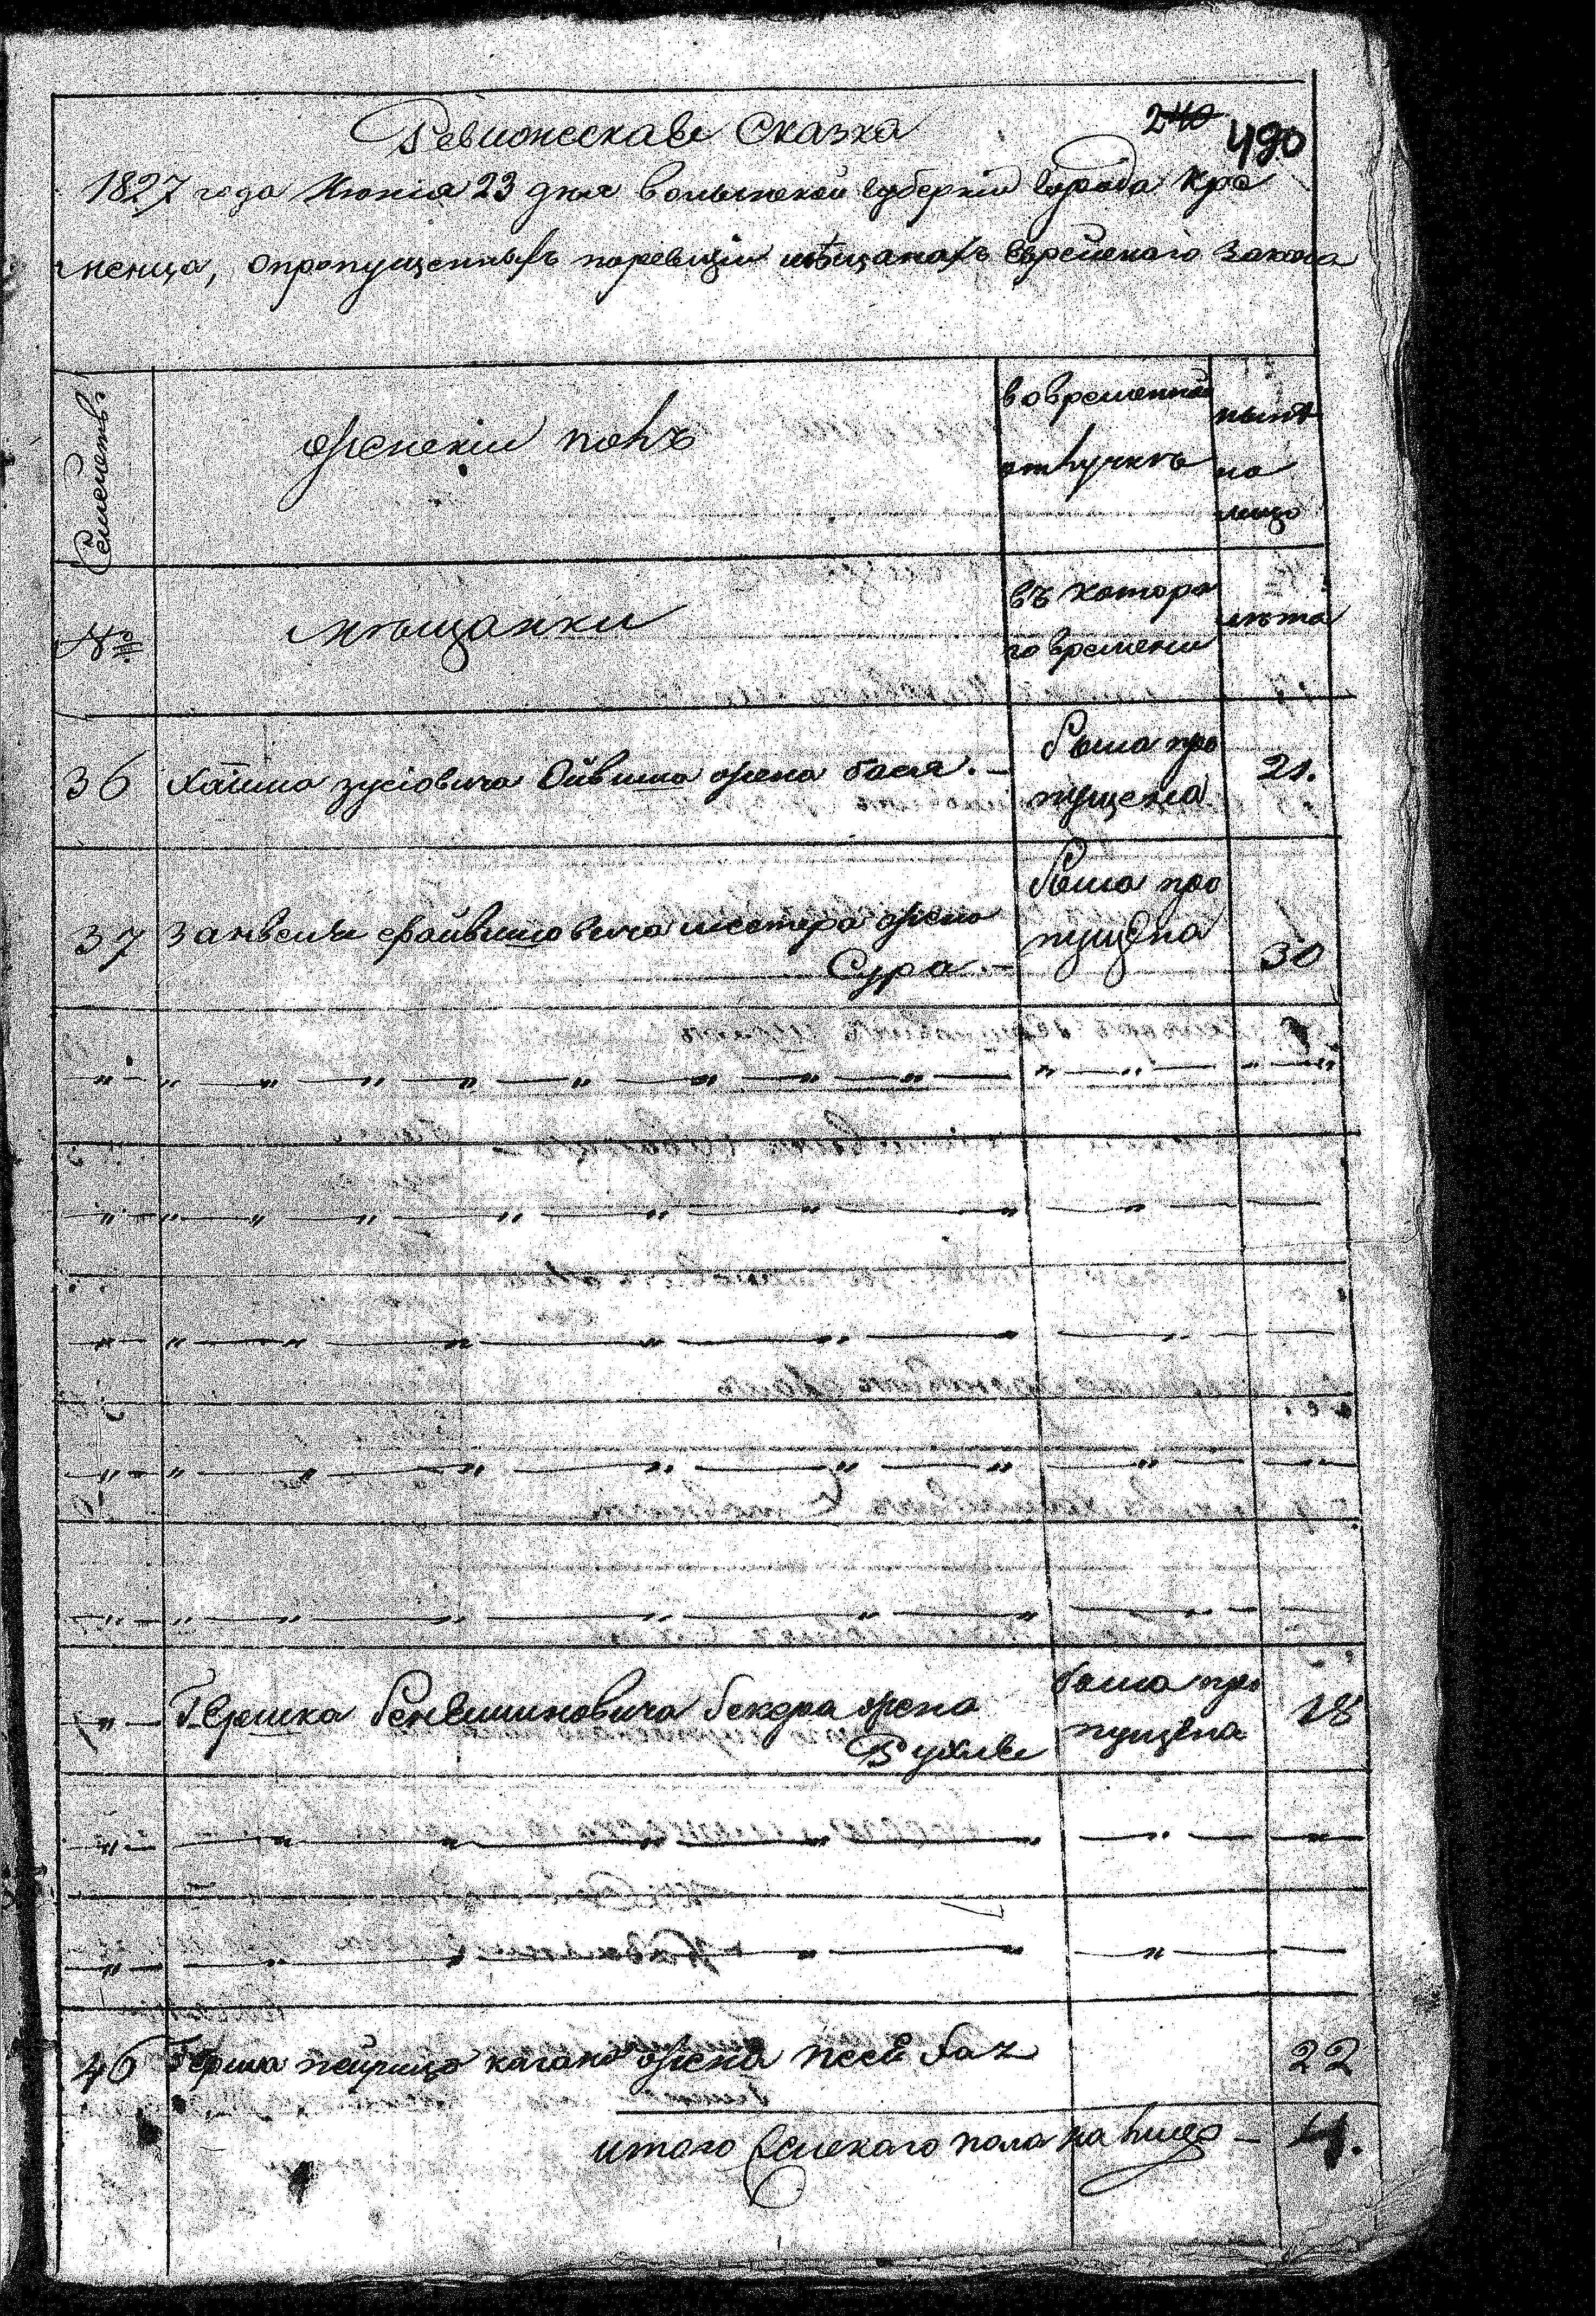 Ревижская Сказка
240 490
1827 года Июнія 23 дня волынской губерніи города Кре
менца, опропущенныхъ поревизіи мѣщанахъ Еврейскаго Закона
Семействъ
женскій полъ
вовременной
отлучкѣ
нынѣ
на
лицо
№
мѣщанки
въ которо
го времени
лѣта
36 Хаима зусіовича жена бася. Была про
пущена 21.
37 Занвеля файвишовича жена
Сура. Была про
пущена 30
Гершка жена
Рухля была про
пущена 18
46 Герша жена 22
итого женскаго пола на лицо – 4.